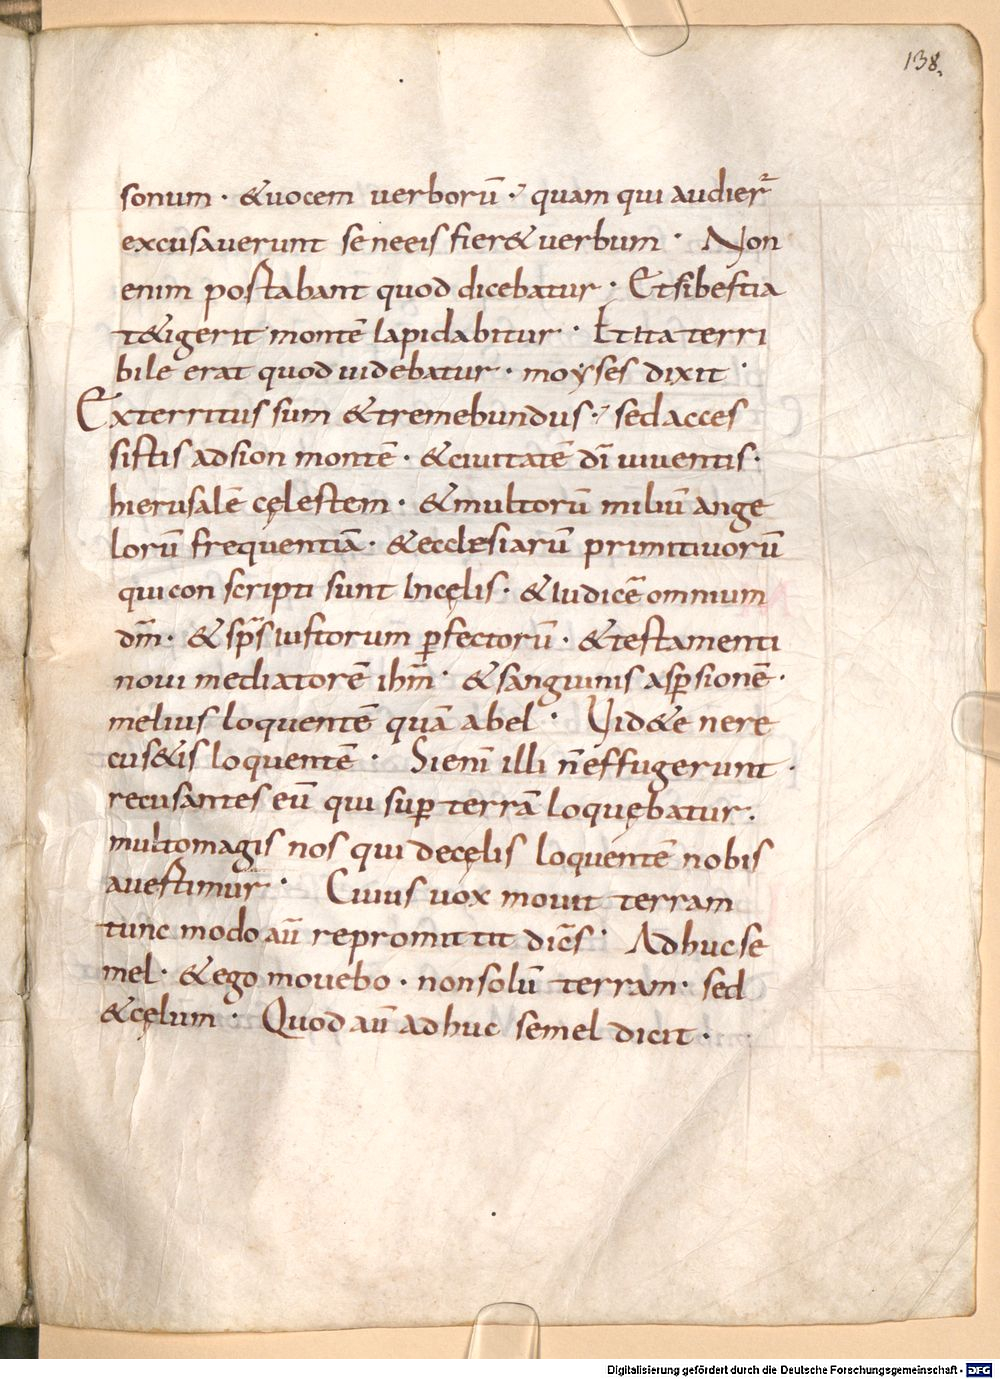 138.
sonum · &uocem uerborū · quam qui audier̄
excusauerunt se neeis fier& uerbum · Non
enim postabant quod dicebatur · Et si bestia
t&igerit montē lapidabitur · Et ita terri
bile erat quod uidebatur · moyses dixit ·
Exterritus sum &tremebundus · sed acces
sistis adsion montē · &ciuitatē dī uiuentis ·
hierusalē cęlestem · &multorū miliū ange
lorū frequentiā · &ecclesiarū primitiuorū
qui con scripti sunt Incęlis · &Iudicē omnium
dm̄ · &sp̄s iustorum ꝑfectorū · &testamenti
noui mediatorē ihm̄ · &sanguinis asꝑsionē ·
melius loquentē quā abel · Uid&e nere
cus&is loquentē · Si enī illi n̄ effugerunt ·
recusantes eū qui suꝑ terrā loquębatur.
multomagis nos qui decęlis loquentē nobis
auestimur · Cuius uox mouit terram
tunc modo aū repromittit dic̄s · Adhuc se
mel · &ego mouebo · non solū terram · sed
&cęlum · Quod aū adhuc semel dicit ·
Digitalisierung gefördert durch die Deutsche Forschungsgemeinschaft - DFG